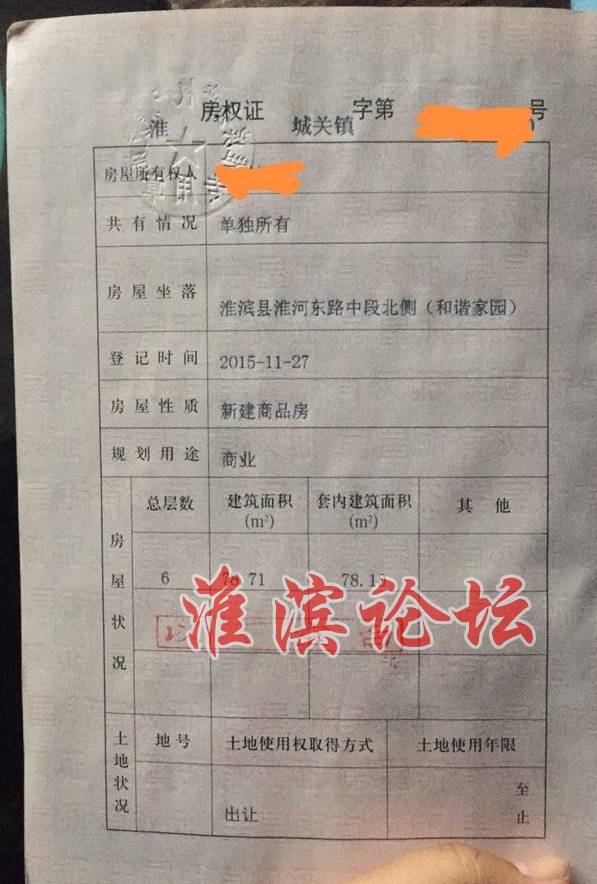 房权证 字第 号
淮 城关镇
房屋所有权人
共有情况 单独所有
房屋坐落 淮滨县淮河东路中段北侧（和谐家园）
登记时间 2015-11-27
房屋性质 新建商品房
规划用途 商业
房屋状况
总层数 建筑面积(m²) 套内建筑面积(m²) 其他
6 78.71
淮滨论坛
土地状况
地号 土地使用权取得方式 土地使用年限
出让 至
止